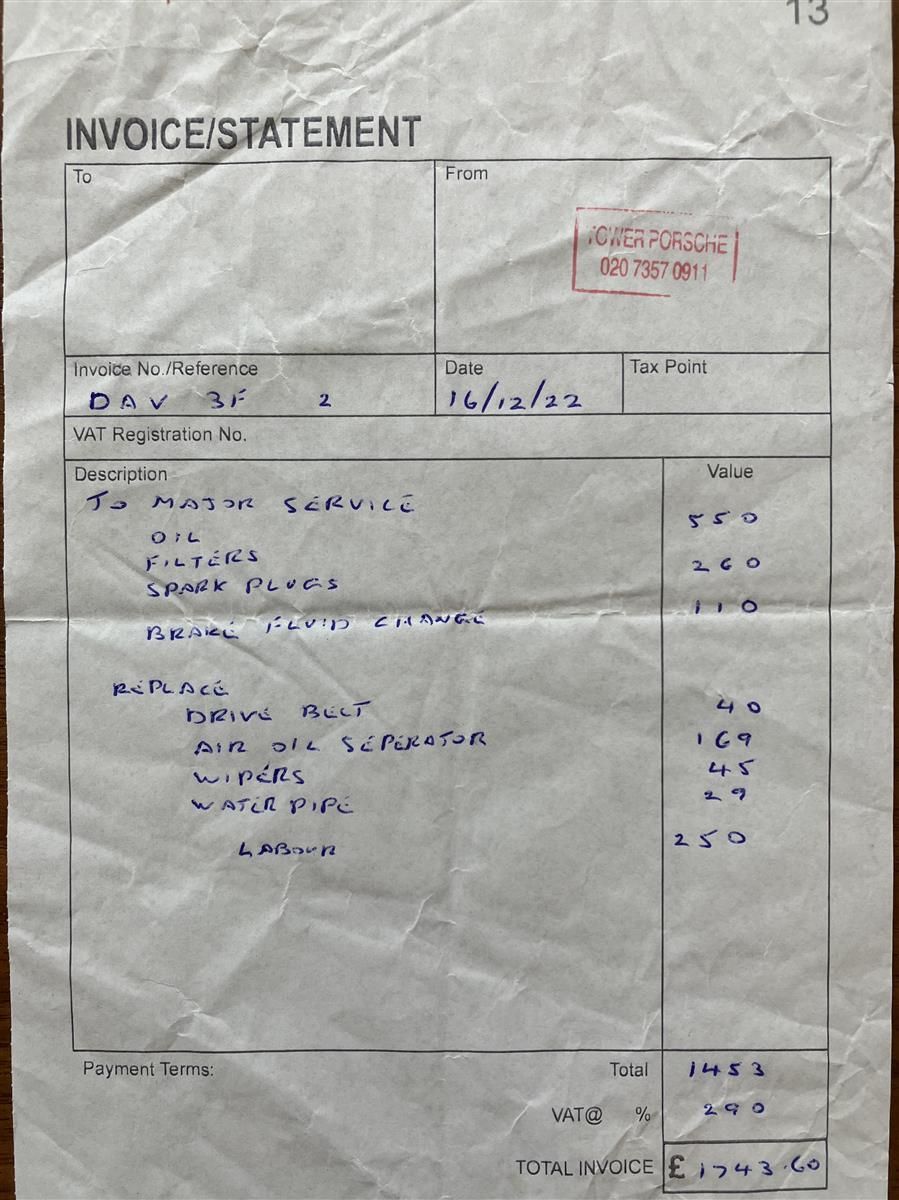 13
INVOICE/STATEMENT
To
From
TOWER PORSCHE
020 7357 0911
Invoice No./Reference
DAV 3F 2
Date
16/12/22
Tax Point
VAT Registration No.
Description
Value
TO MAJOR SERVICE 550
OIL
FILTERS 260
SPARK PLUGS
BRAKE FLUID CHANGE 110
REPLACE
DRIVE BELT 40
AIR OIL SEPERATOR 169
WIPERS 45
WATER PIPE 29
LABOUR 250
Payment Terms:
Total 1453
VAT@ % 290
TOTAL INVOICE £1743.60